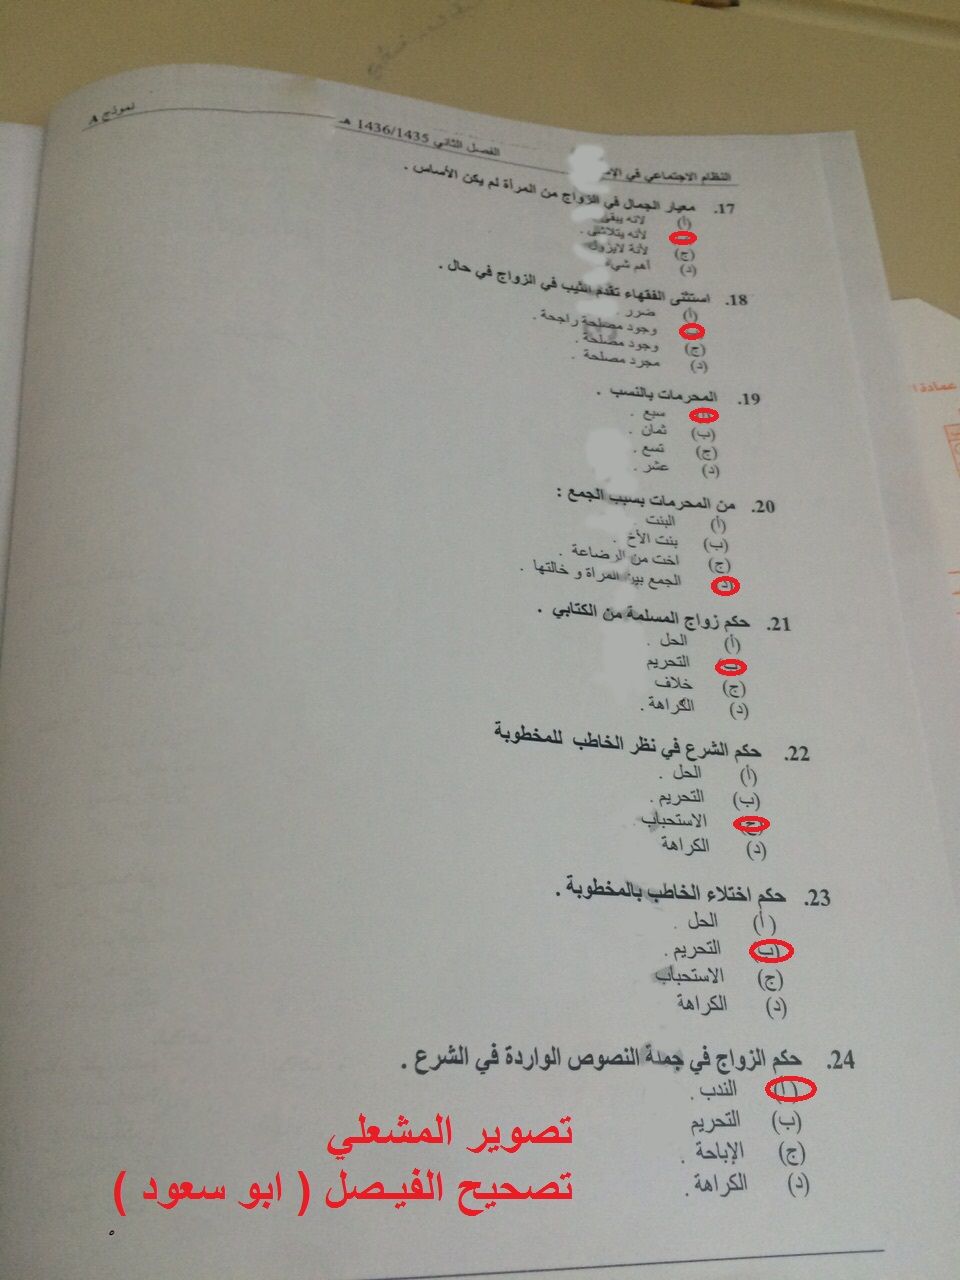 نموذج A
الفصل الثاني 1436/1435 هـ
النظام الاجتماعي في
17. معيار الجمال في الزواج من المرأة لم يكن الأساس .
(أ) لانه يبقى
لأنه يتلاشى .
(ج) لأنة لايزول
(د) أهم شيء
18. استثنى الفقهاء تقدم الثيب في الزواج في حال .
(أ) ضرر .
وجود مصلحة راجحة .
(ج) وجود مصلحة .
(د) مجرد مصلحة .
19. المحرمات بالنسب .
سبع .
(ب) ثمان .
(ج) تسع .
(د) عشر .
20. من المحرمات بسبب الجمع :
(أ) البنت
(ب) بنت الأخ .
(ج) اخت من الرضاعة .
(د) الجمع بين المراة و خالتها .
21. حكم زواج المسلمة من الكتابي .
(أ) الحل .
(ب) التحريم
(ج) خلاف
(د) الكراهة .
22. حكم الشرع في نظر الخاطب للمخطوبة
(أ) الحل .
(ب) التحريم .
(ج) الاستحباب .
(د) الكراهة
23. حكم اختلاء الخاطب بالمخطوبة .
(أ) الحل .
(ب) التحريم .
(ج) الاستحباب
(د) الكراهة
24. حكم الزواج في جملة النصوص الواردة في الشرع .
(أ) الندب .
(ب) التحريم
(ج) الإباحة .
(د) الكراهة .
تصوير المشعلي
تصحيح الفيصل ( ابو سعود )
عمادة